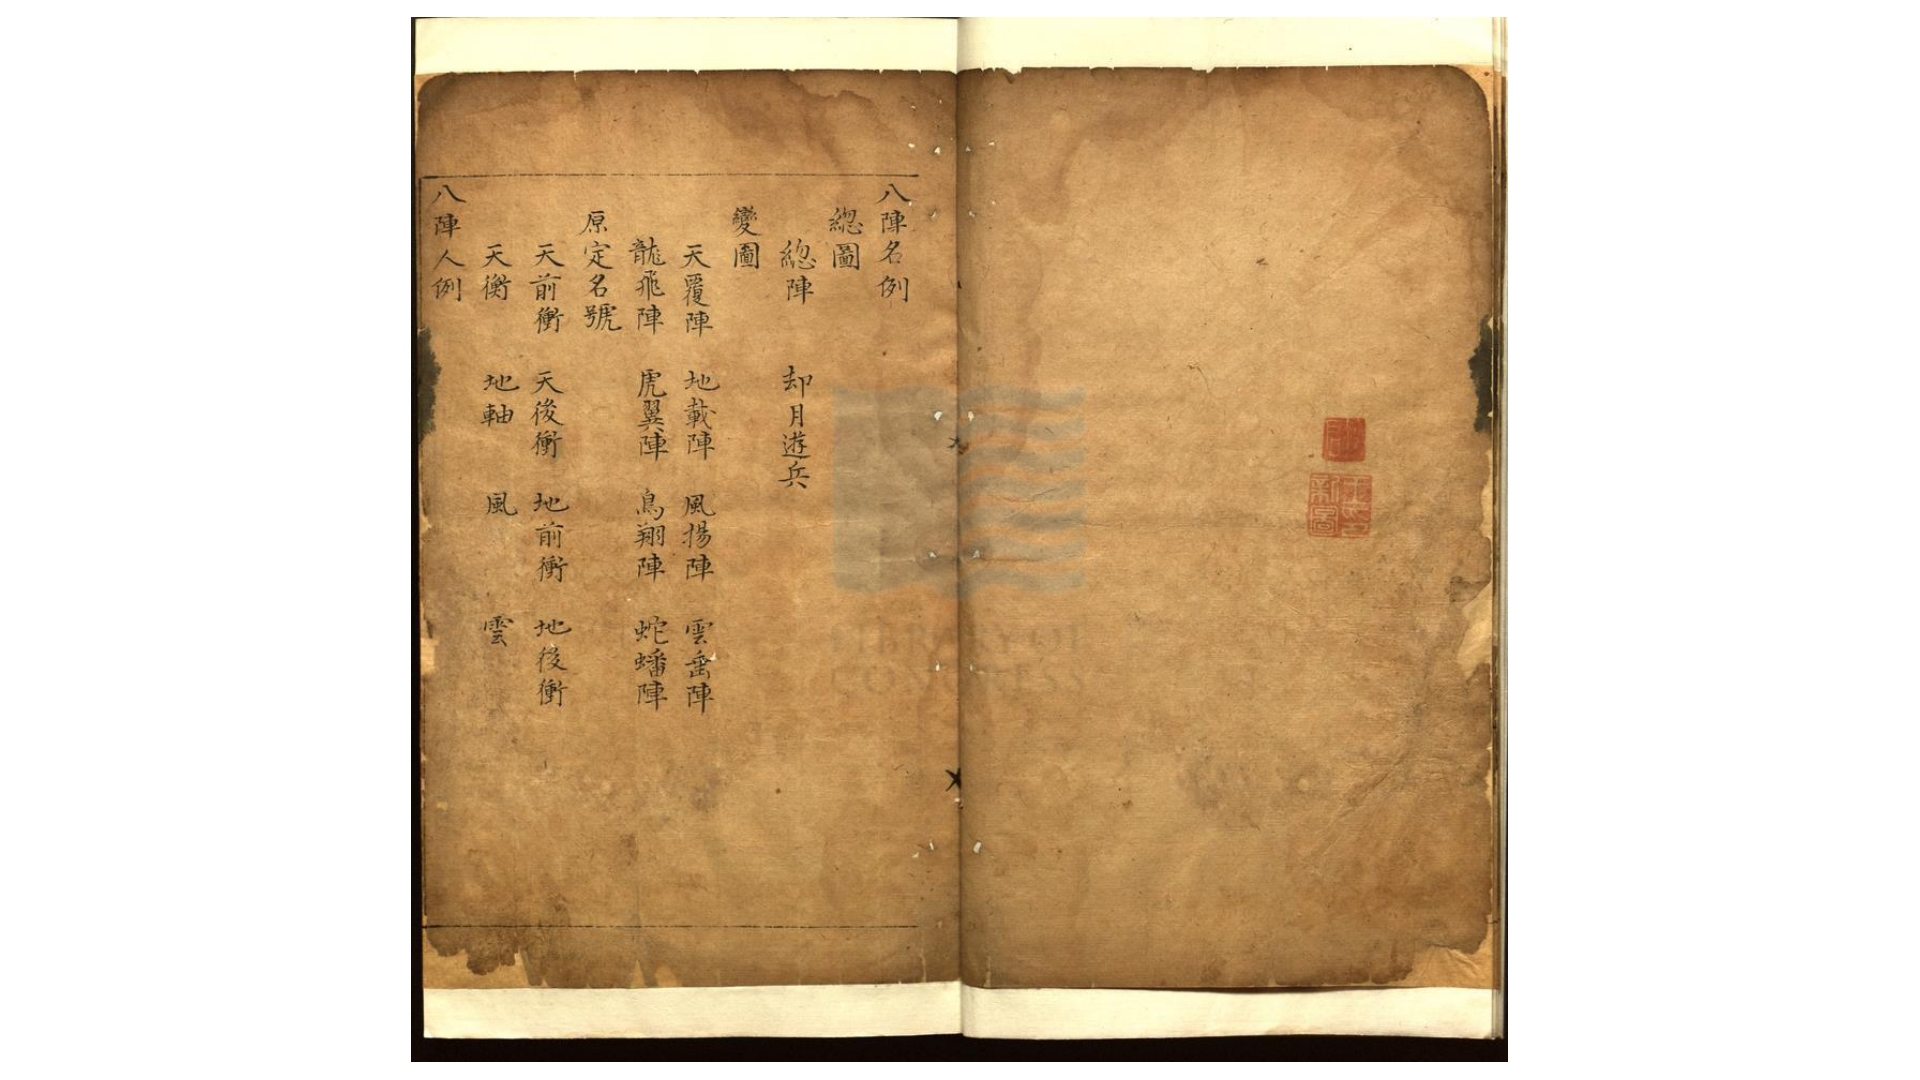 八陣名例
總圖
總陣 却月遊兵
變圖
天覆陣 地載陣 風揚陣 雲垂陣
龍飛陣 虎翼陣 鳥翔陣 蛇蟠陣
原定名號
天前衝 天後衝 地前衝 地後衝
天衡 地軸 風 雲
八陣人例
LIBRARY OF
CONGRESS